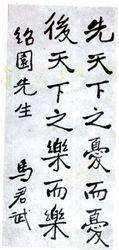 先天下之憂而憂
後天下之樂而樂
紹園先生
馬君武